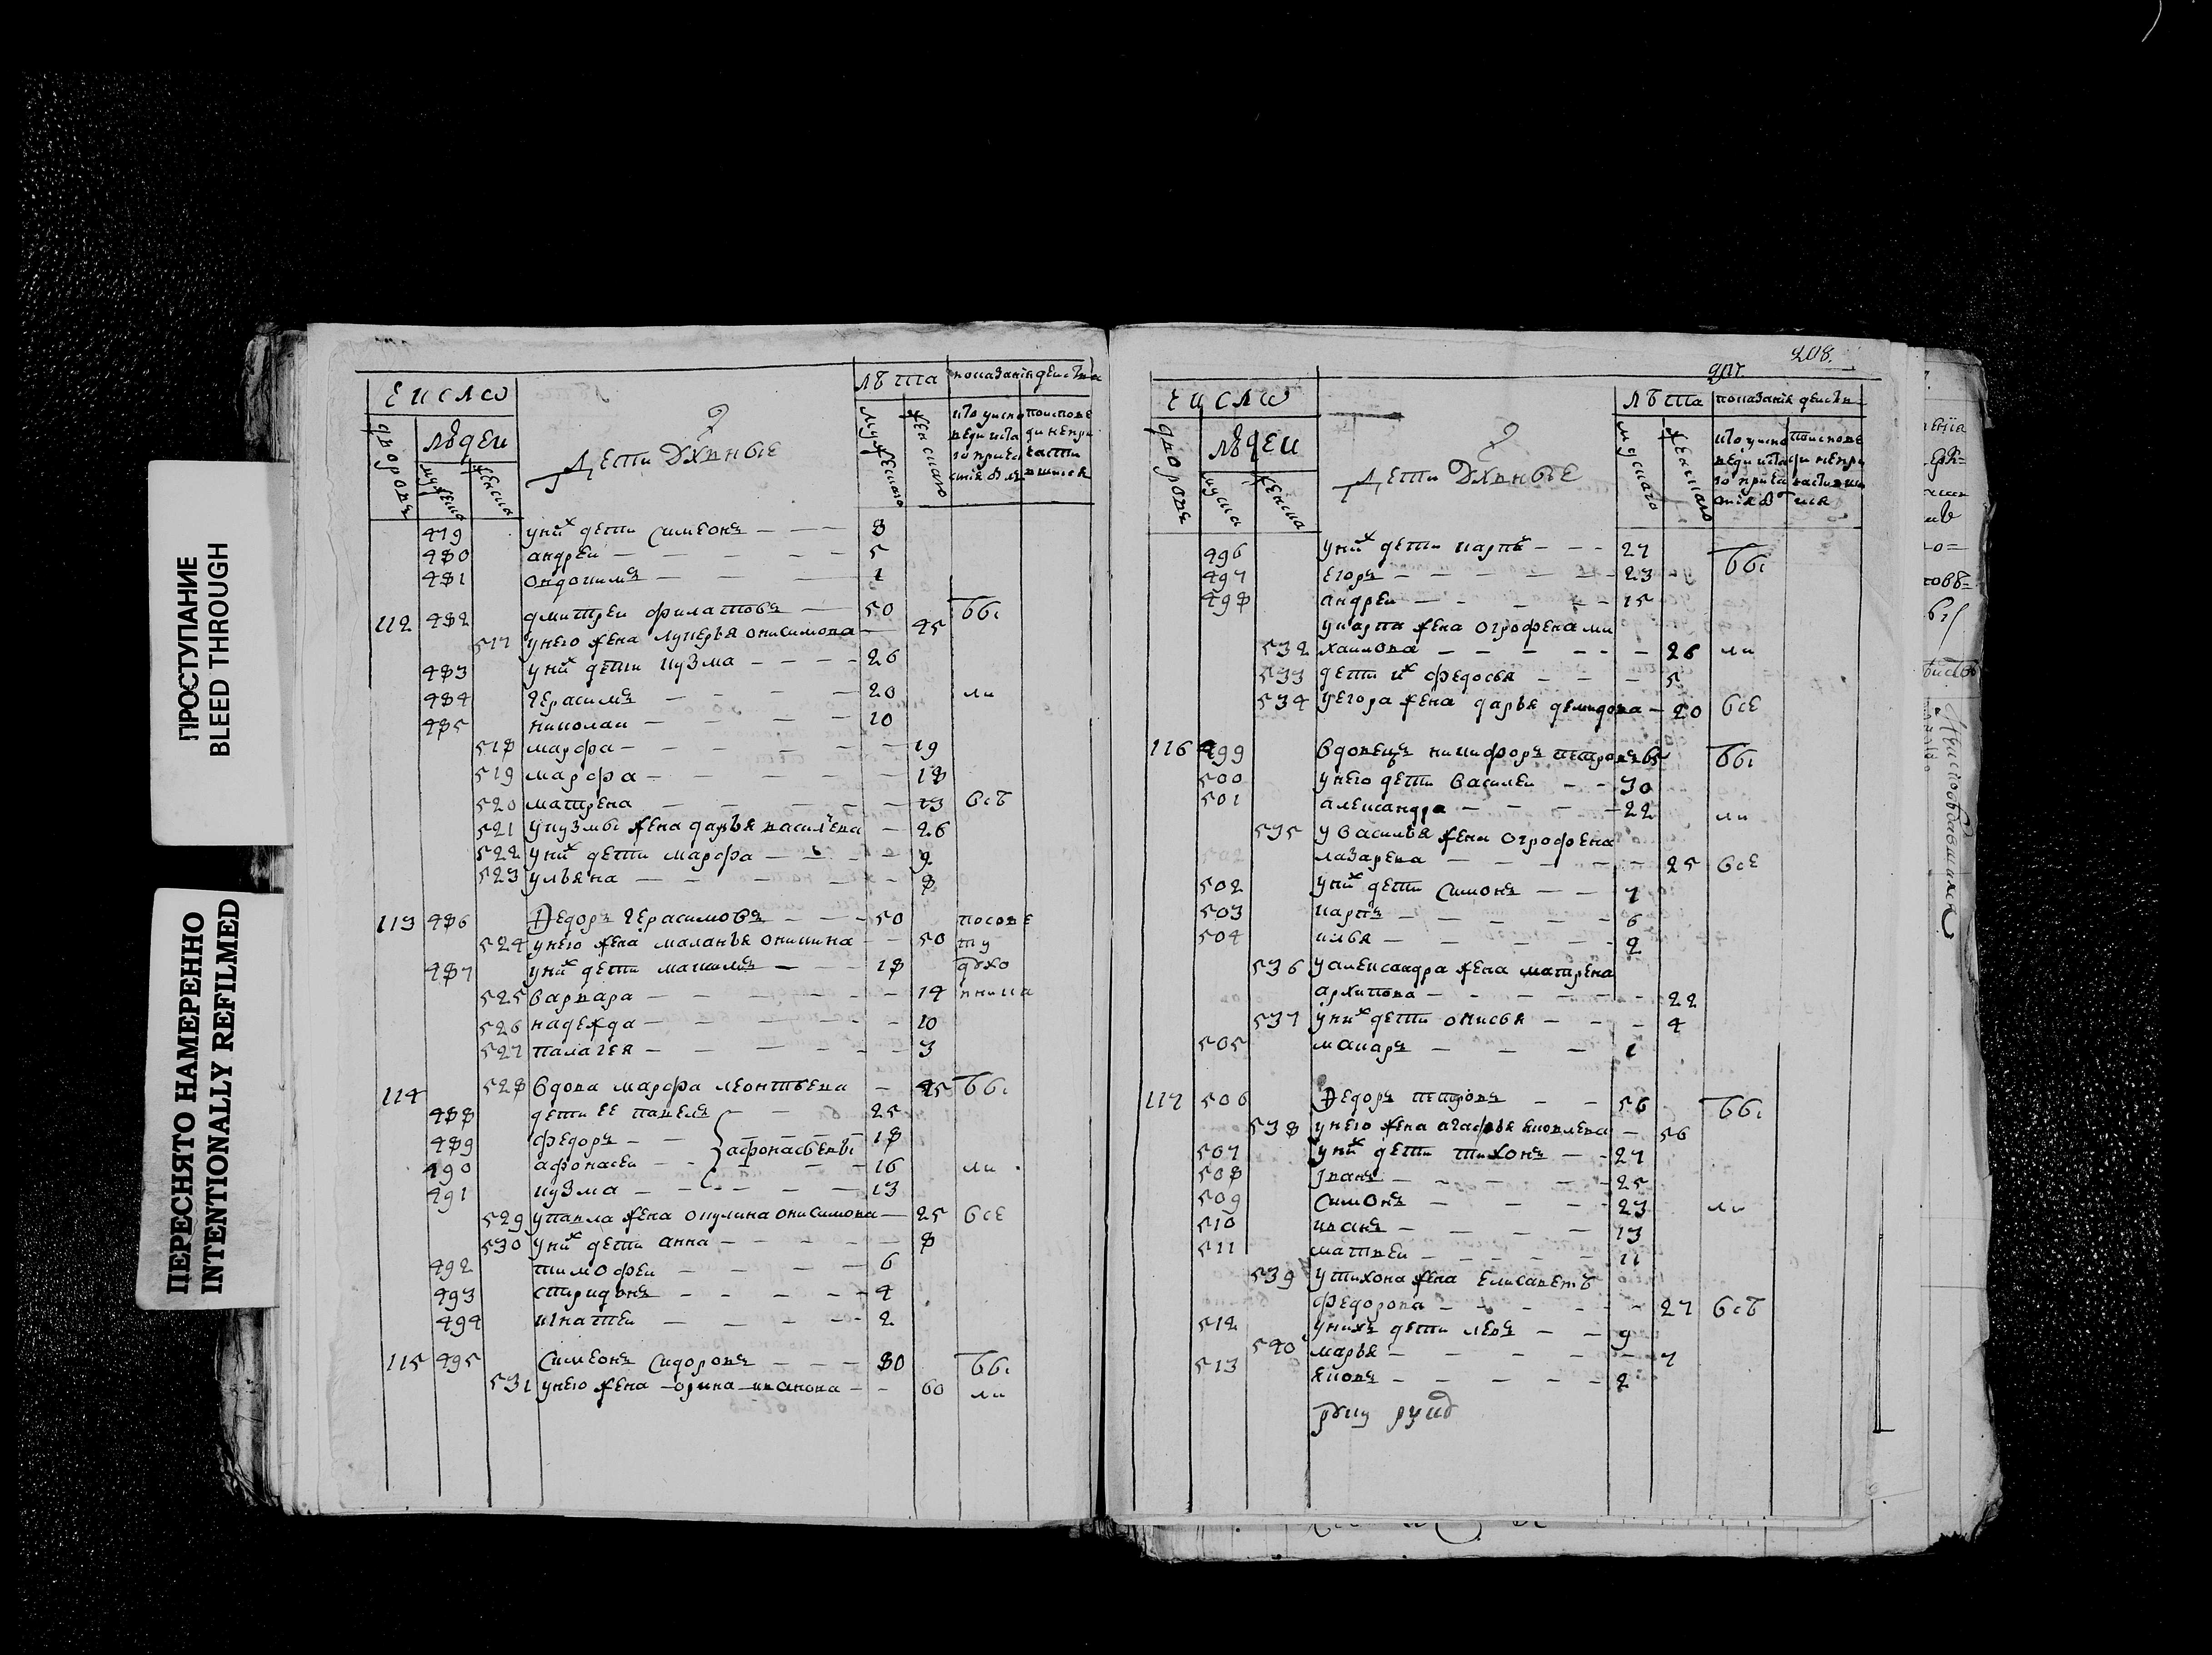 ПРОСТУПАНИЕ
BLEED THROUGH
ПЕРЕСНЯТО НАМЕРЕННО
INTENTIONALLY REFILMED
число
людеи
дети дхвные
лѣта
479 у них дети симеонъ 8
480 андреи 5
481 1
112 482 дмитреи филатовъ 50
517 у него жена лукерья онисимова 45
483 у них дети кузма 26
484 герасимъ 20 ли
485 николаи 10
518 марфа 19
519 марфа 18
520 матрена 13
521 у кузмы жена дарья василева 26
522 у них дети марфа 9
523 ульяна 8
113 486 федоръ герасимовъ 50
524 у него жена маланья 50
487 у них дети 18
525 варвара 14
526 надежда 10
527 палагея 3
114 528 вдова марфа леонтьева 45
488 дети ее павелъ 25
489 федоръ афонасьевы 18
490 афонасеи 16 ли
491 кузма 13
529 у павла жена окулина онисимова 25 все
530 у них дети анна 8
492 тимофеи 6
493 спиридонъ 4
494 игнатеи 2
115 495 симеонъ сидоровъ 80
531 у него жена орина иванова 60 ли
208.
число
людеи
дети дхвные
лѣта
496 у них дети карпъ 27
497 егоръ 23
498 андреи 15
у карпа жена огрофена ми
532 хаилова 26 ли
533 дети их федосья 5
534 у егора жена дарья демидова 20 все
116 499 вдовецъ никифоръ петровъ 65
500 у него дети василеи 30
501 александра 22 ли
535 у василья жена огрофена
лазарева 25 все
502 у них дети симонъ 7
503 карпъ 6
504 илья 2
536 у александра жена матрена
архипова 22
537 у них дети онисья 4
505 макаръ 1
117 506 федоръ петровъ 56
538 у него жена агафья яковлева 56
507 у них дети тихонъ 27
508 иванъ 25
509 симонъ 23 ли
510 иванъ 13
511 матвеи 11
539 у тихона жена елисаветъ
федорова 27
512 у нихъ дети левъ 9
540 марья 7
513 яковъ 2